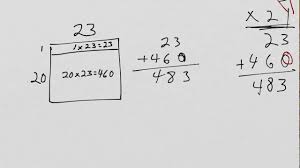 23
1
1×23=23
20
20×23=460
23
+460
483
×21
23
+460
483